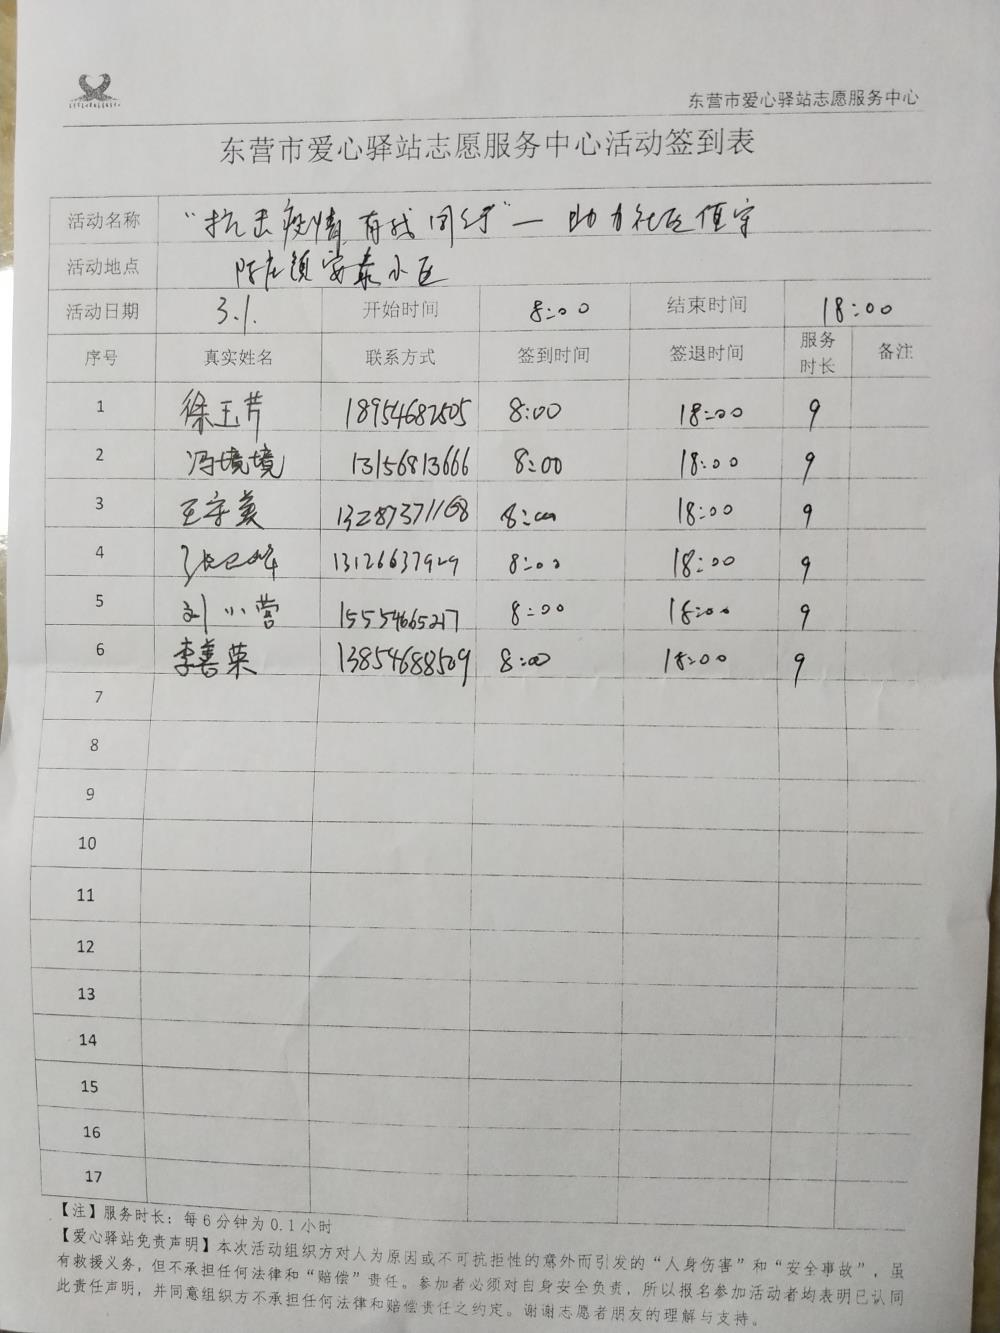 东营市爱心驿站志愿服务中心
东营市爱心驿站志愿服务中心活动签到表
活动名称 “抗击疫情,有我同行”— 助力社区值守
活动地点 陈庄镇安泰小区
活动日期 3.1. 开始时间 8:00 结束时间 18:00
序号 真实姓名 联系方式 签到时间 签退时间 服务时长 备注
1 徐玉芹 18954682505 8:00 18:00 9
2 冯境境 13156813666 8:00 18:00 9
3 王守美 13287371168 8:00 18:00 9
4 13126637929 8:00 18:00 9
5 刘小营 15554665217 8:00 18:00 9
6 李善荣 13854688509 8:00 18:00 9
7
8
9
10
11
12
13
14
15
16
17
【注】服务时长：每6分钟为0.1小时
【爱心驿站免责声明】本次活动组织方对人为原因或不可抗拒性的意外而引发的“人身伤害”和“安全事故”，虽
有救援义务，但不承担任何法律和“赔偿”责任。参加者必须对自身安全负责，所以报名参加活动者均表明已认同
此责任声明，并同意组织方不承担任何法律和赔偿责任之约定。谢谢志愿者朋友的理解与支持。